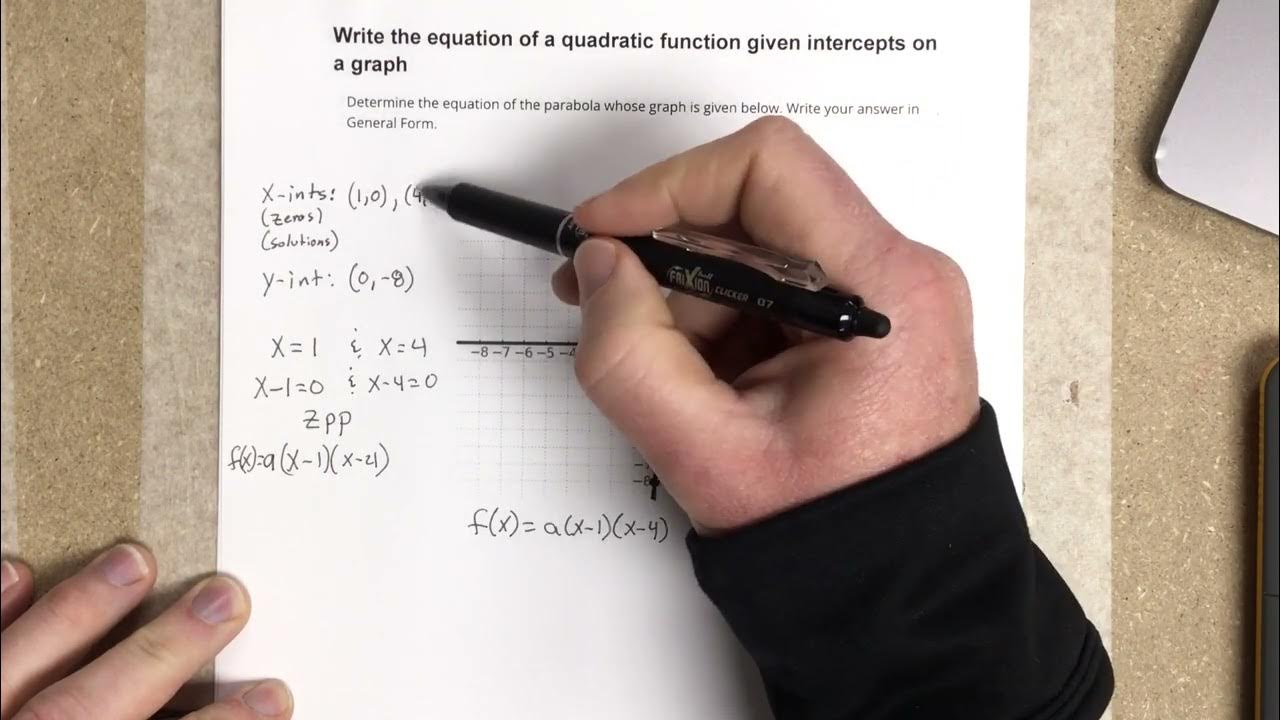 Write the equation of a quadratic function given intercepts on
a graph
Determine the equation of the parabola whose graph is given below. Write your answer in
General Form.
X-ints: (1,0), (4,
(zeros)
(solutions)
y-int: (0,-8)
X=1 & X=4
X-1=0 & X-4=0
ZPP
f(x)=a(X-1)(X-4)
-8 -7 -6 -5 -4
-8
f(x)=a(x-1)(x-4)
FRIXION CLICKER 07